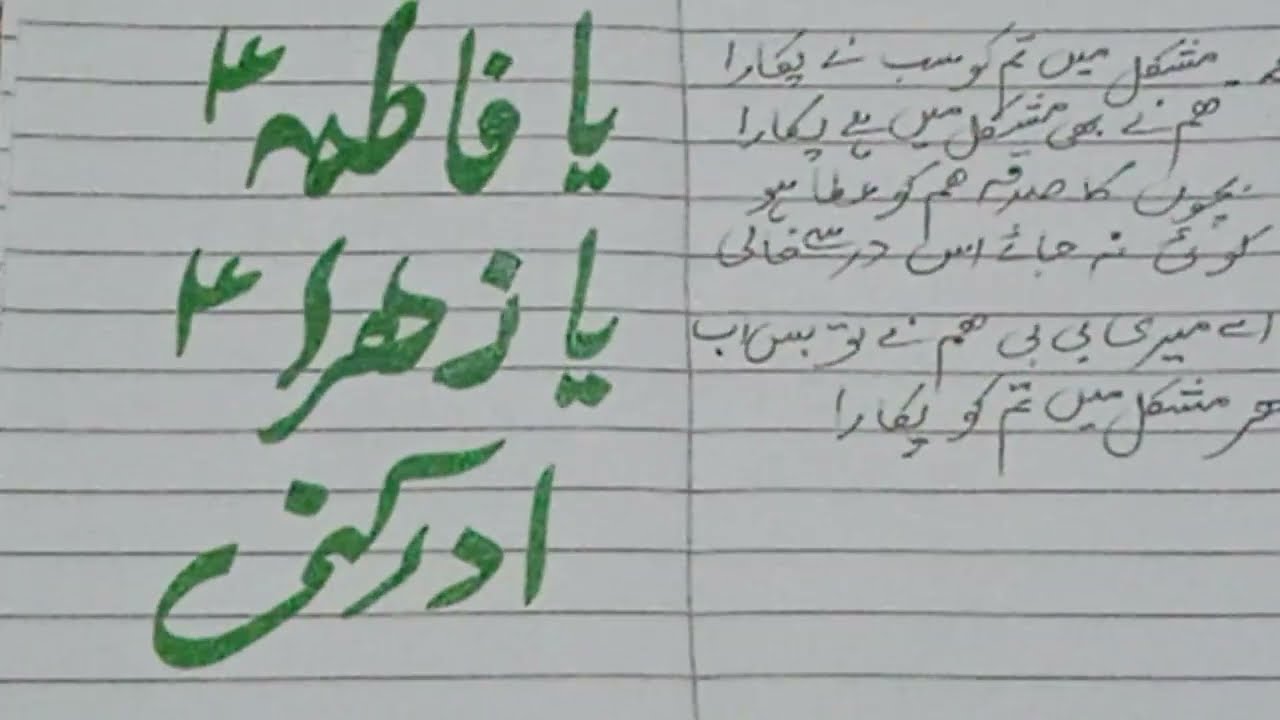 مشکل میں تم کو سب نے پکارا
ھم نے بھی مشکل میں ہے پکارا
بچوں کا صدقہ ھم کو عطا ہو
کوئی نہ جائے اس در سے خالی
اے میری بی بی ھم نے تو بس اب
ھر مشکل میں تم کو پکارا
یا فاطمہ ؑ
یا زھرا ؑ
ادرکنی